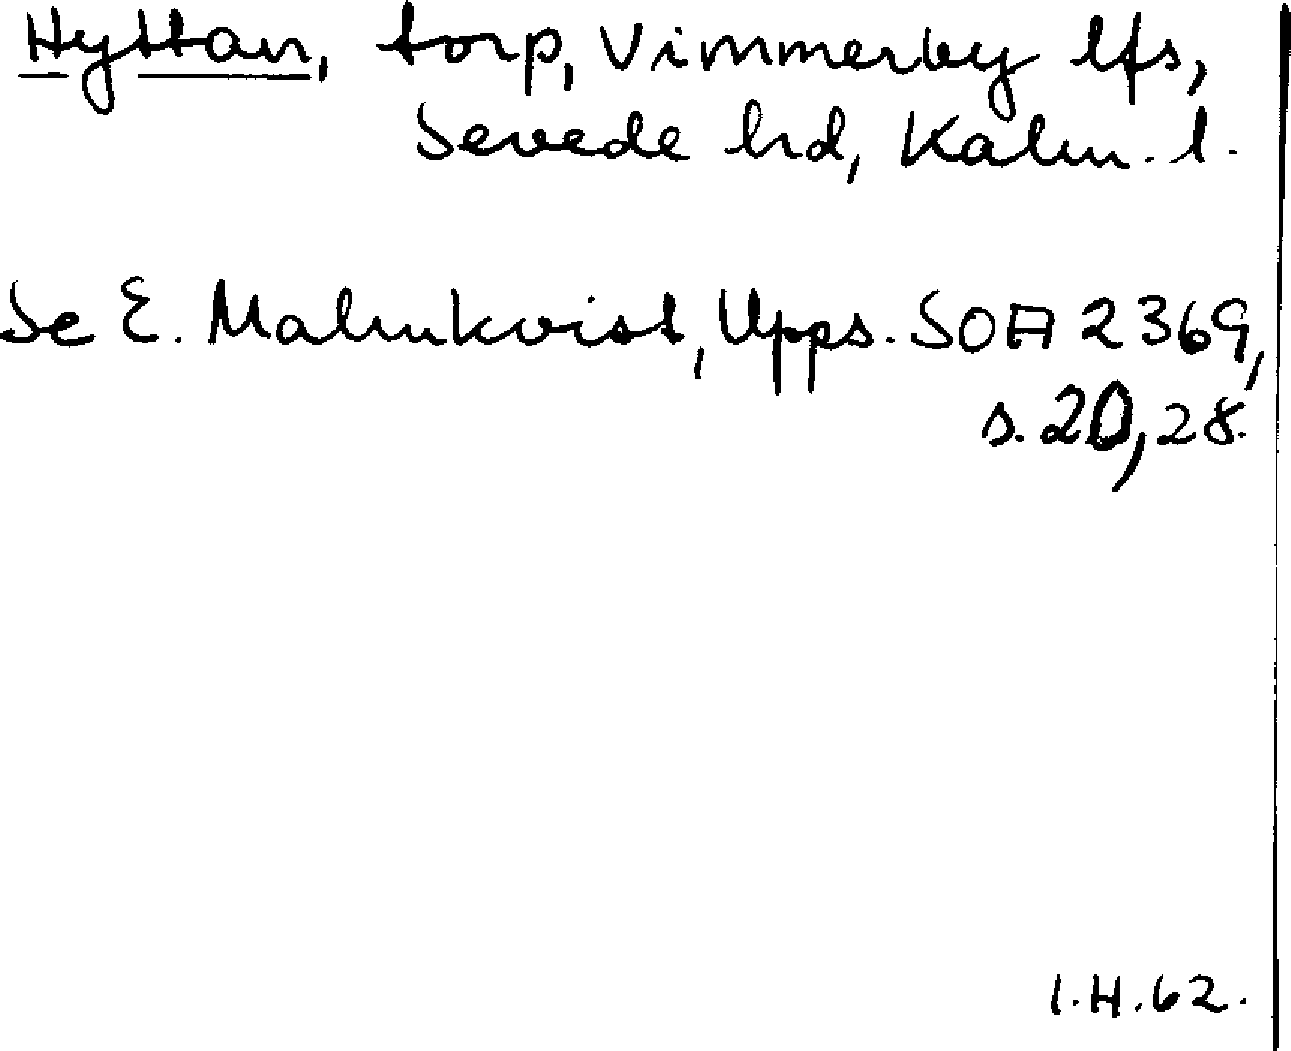 Hyttan, torp, Vimmerby lfs,
Sevede hd, Kalm. l.
Se E. Malmkvist, Upps. SOA 2369,
s. 20, 28.
I.H.62.